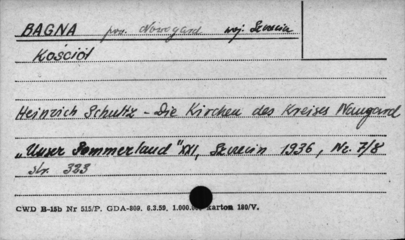 BAGNA pow. Nowogard woj. Szczecin
Kościół
Heinrich Schultz - Die Kirchen des Kreises Naugard
"Unser Pommerland" XXI, Szczecin 1936, Nr. 7/8
str. 323
CWD B-15b Nr 515/P. GDA-869. 6.2.59. 1.000.00 karton 180/V.